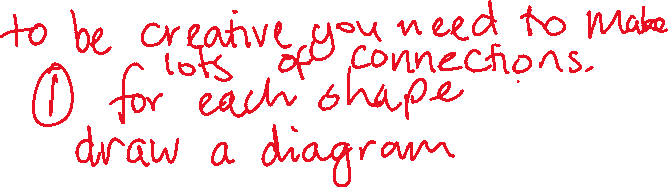 to be creative you need to make
lots of connections.
① for each shape
draw a diagram